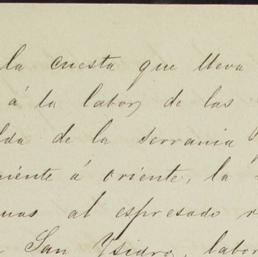 la cuesta que lleva
á la labor, de las
lda de la serrania
niente á oriente, la
uas al espresado r
San Ysidro, labor